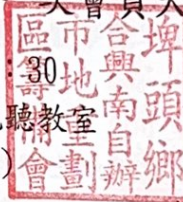 埤頭鄉
合興南自辦
市地重劃
區籌備會
:30
聽教室
)